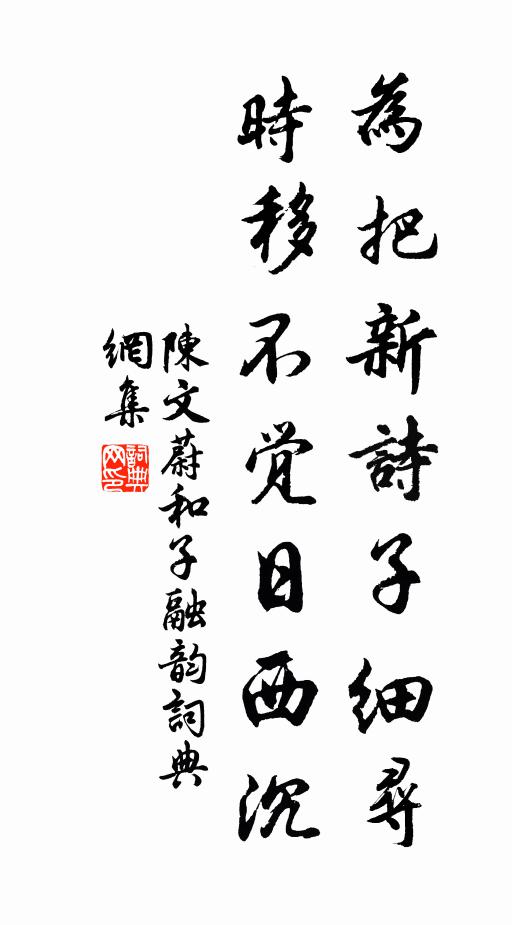 為把新詩子細尋
時移不觉日西沉
陳文蔚和子融韵詞典
網集
詞典
网印